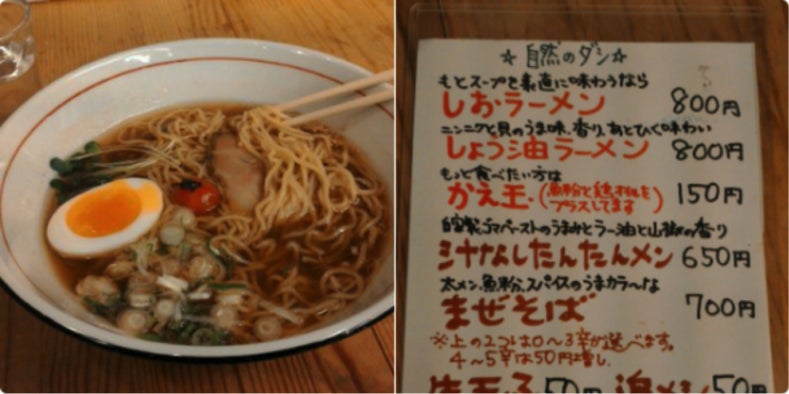 ☆自然のダシ☆
もとスープを素直に味わうなら
しおラーメン 800円
ニンニクと貝のうま味、香り、あとひく味わい
しょう油ラーメン 800円
もっと食べたい方は
かえ玉、(魚粉と鶏油を 150円
プラスしてます)
自家製ゴマペーストのうまみとラー油と山椒の香り
汁なしたんたんメン 650円
太メン、魚粉、スパイスのうまカラ〜な
まぜそば 700円
※上の2コは0〜3辛が選べます。
4〜5辛は50円増し。
50円 50円